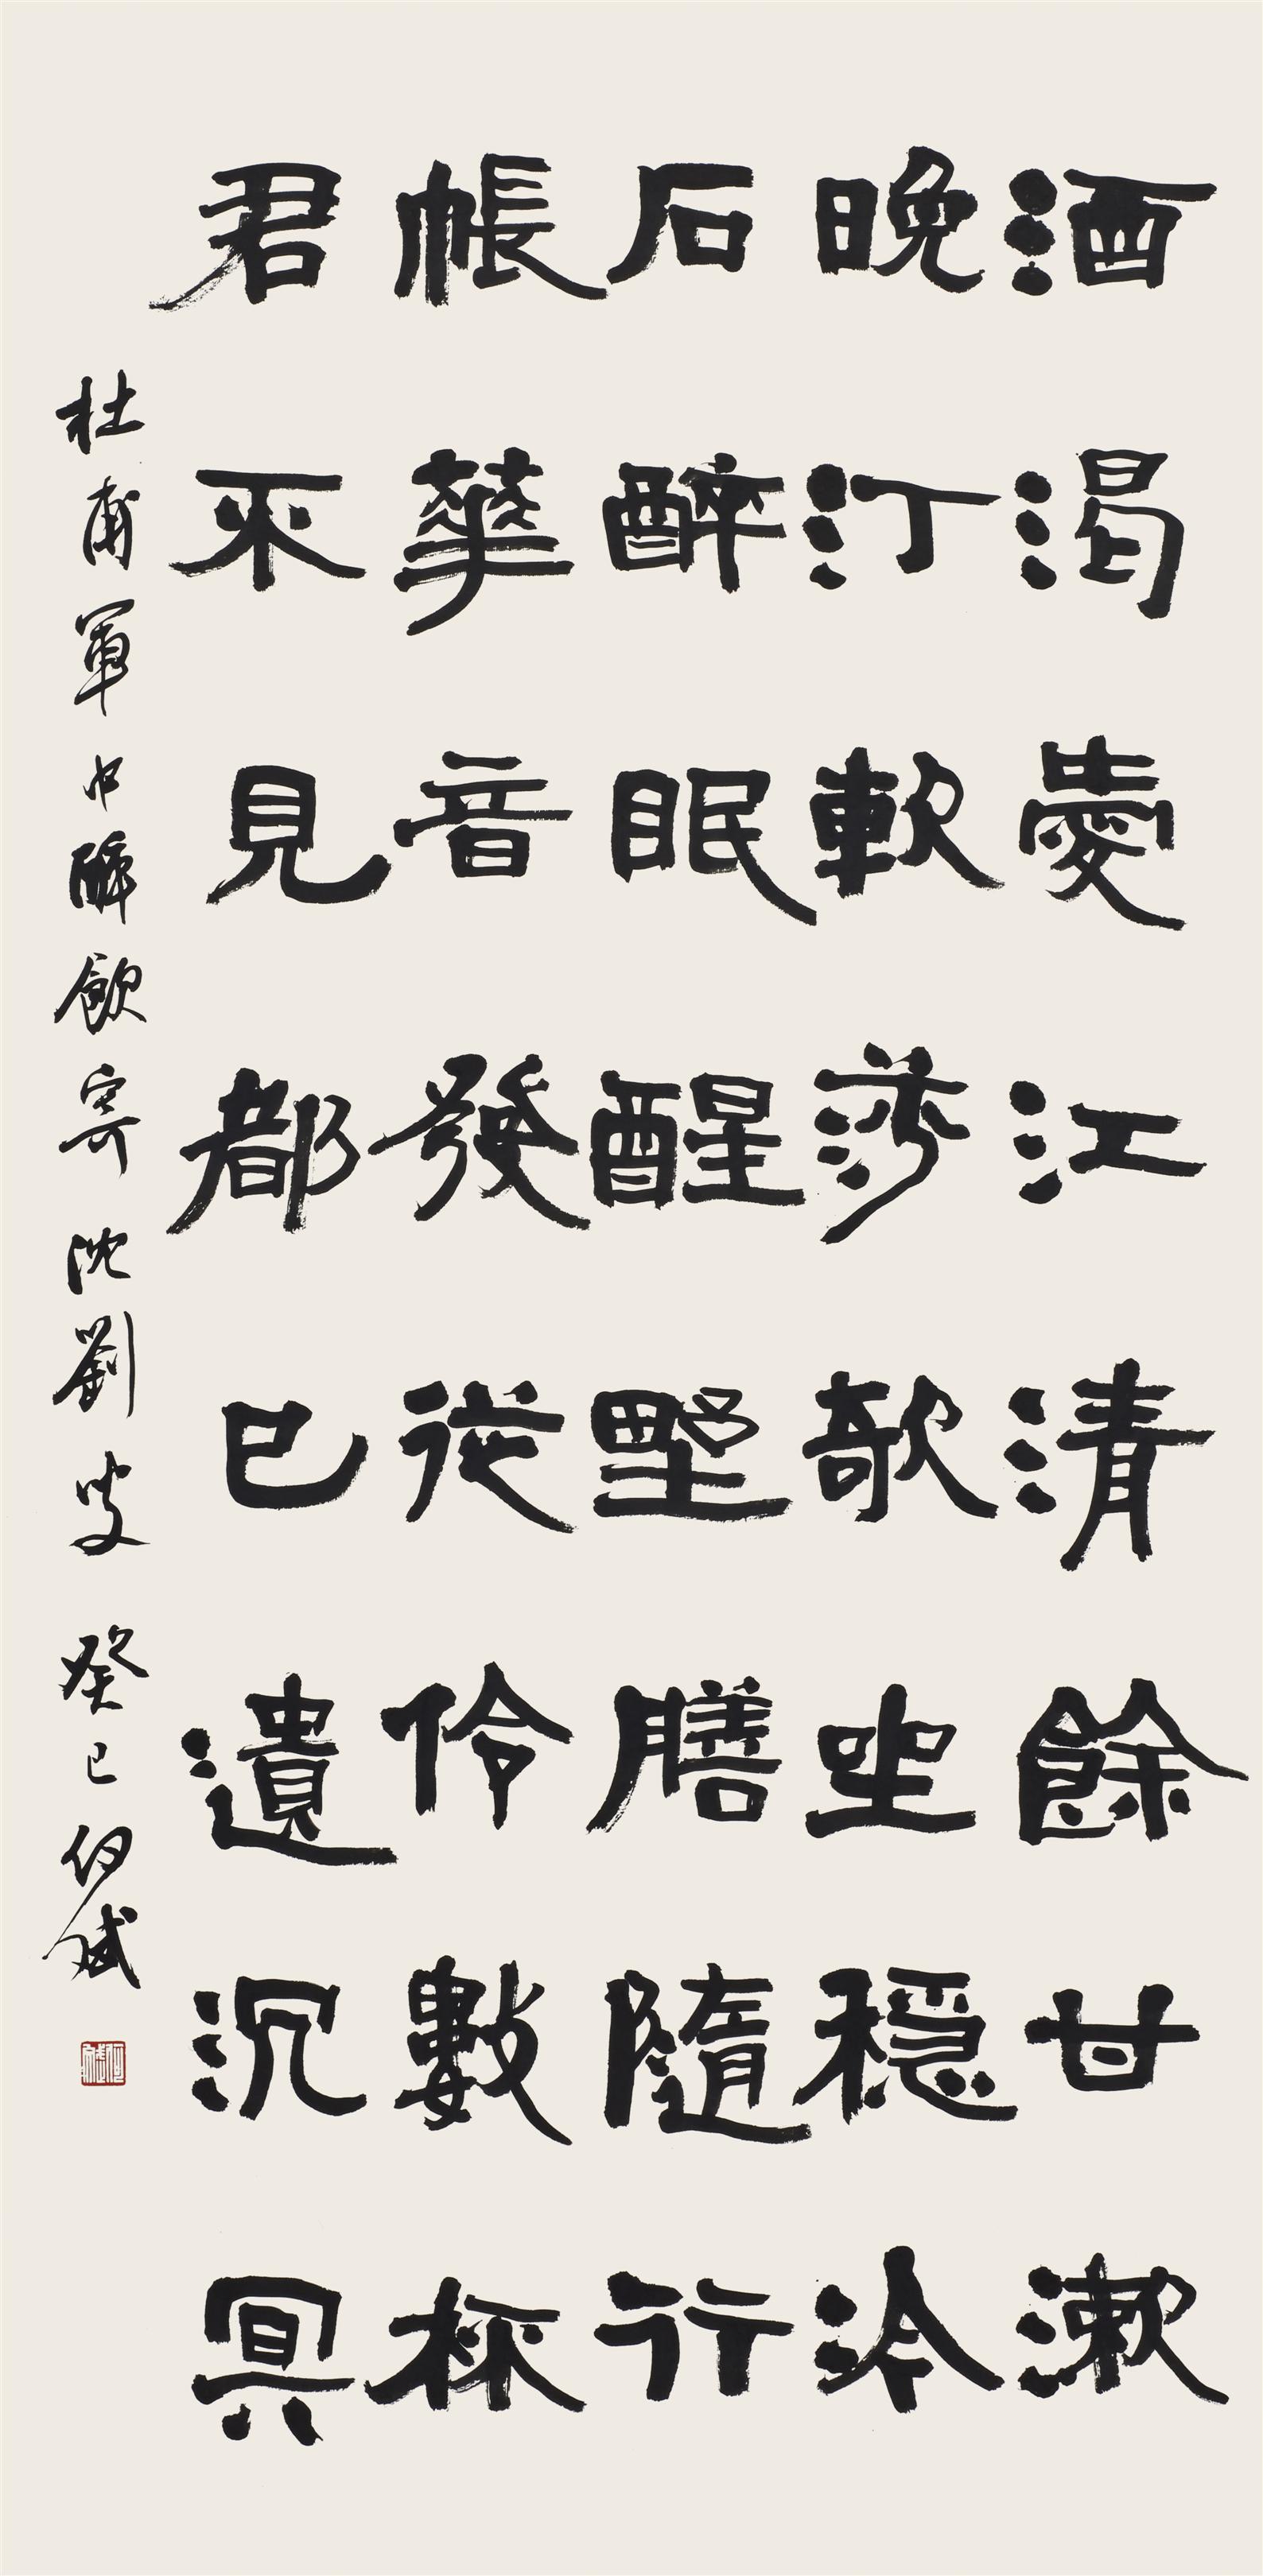 酒渴愛江清餘甘漱
晚汀軟莎欹坐穩冷
石醉眠醒野膳隨行
帳華音發從伶數杯
君不見都已遺沉冥
杜甫軍中醉飲寄沈劉叟 癸巳 斌